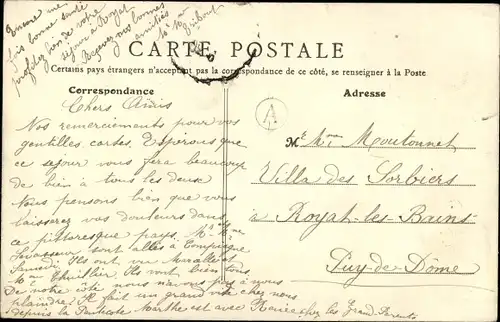 Encore une
fois bonne santé
profitez bien de votre
séjour à Royat
Recevez nos bonnes
amitiés
CARTE POSTALE
Certains pays étrangers n'acceptent pas la correspondance de ce côté, se renseigner à la Poste
Correspondance
Adresse
Chers Amis
A
Nos remerciements pour vos
gentilles cartes. Espérons que
ce séjour vous fera beaucoup
de bien à tous les deux
Nous pensons bien que vous
laisserez vos douleurs dans
ce pittoresque pays. Mr Mme
Levasseur sont allés à Compiègne
Samedi. Ils ont vu
Mme Lhuillier. Ils vont bien tous.
De notre côté nous n'avons pas à nous
plaindre. Il fait un grand vide chez nous
depuis la Marthe est avec Renée chez les Grand-Parents
M. Mme Moutonnet
Villa des Sorbiers
à Royat-les-Bains
Puy-de-Dôme